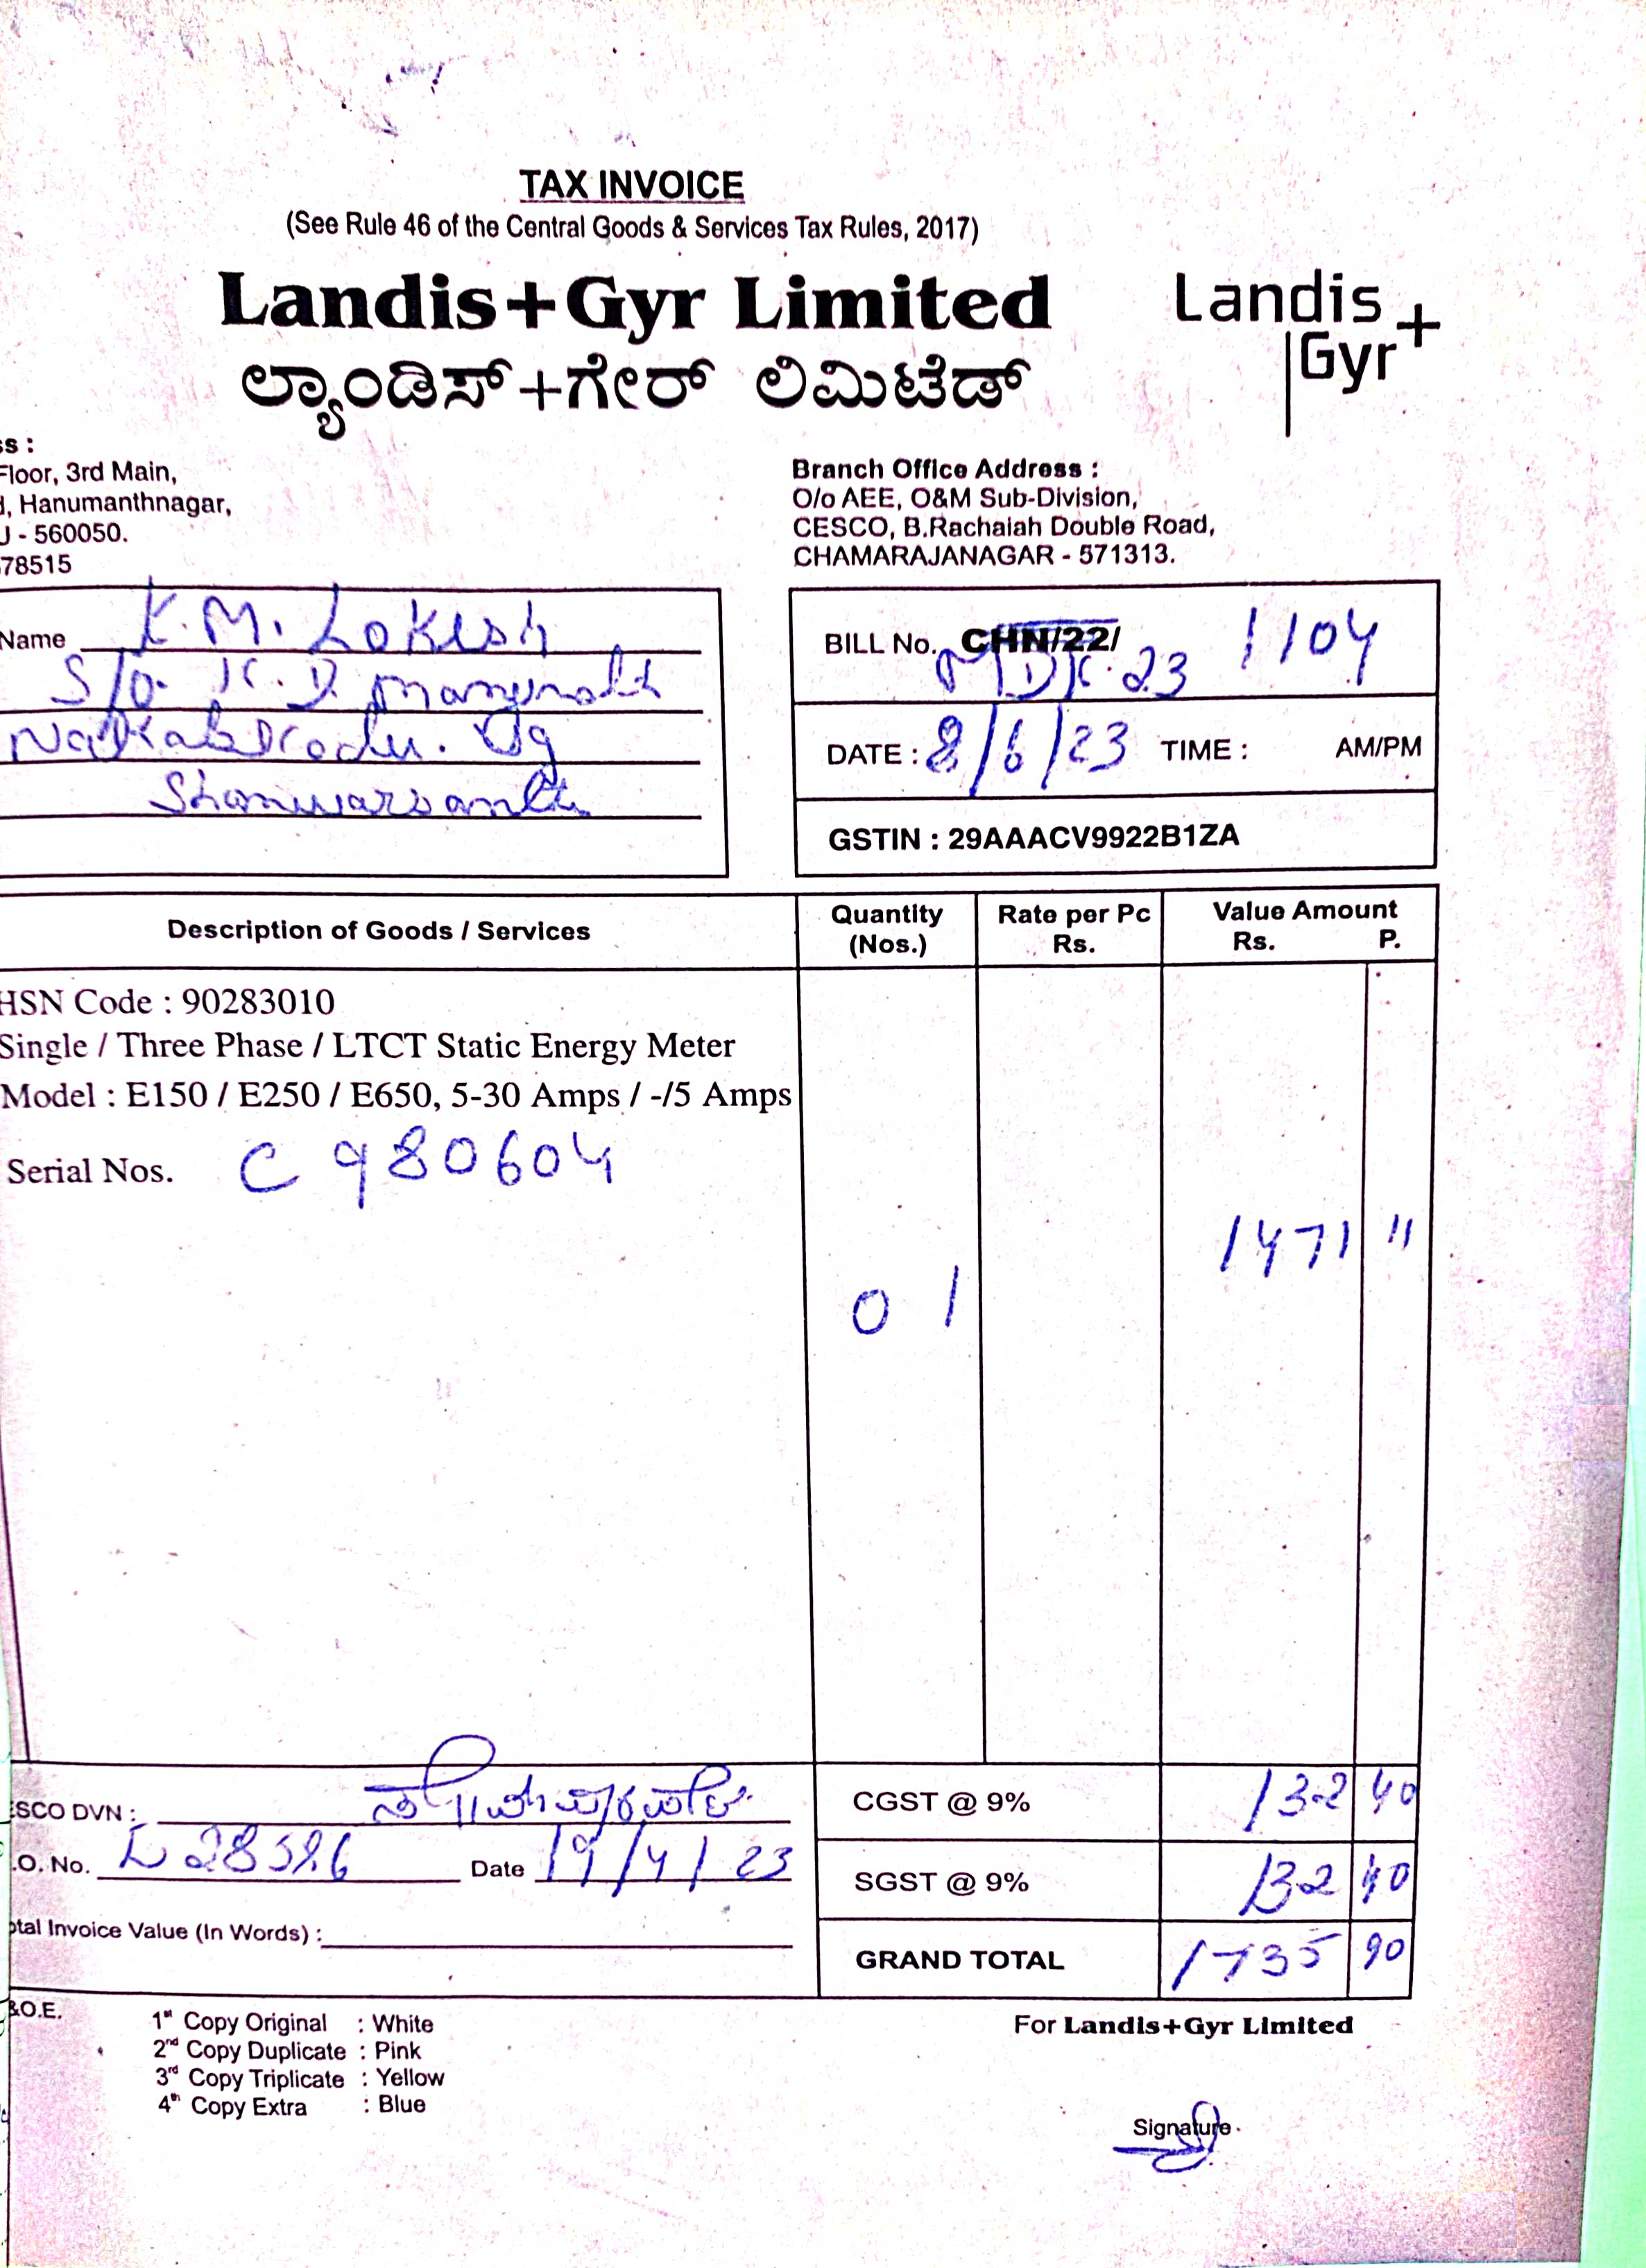 TAX INVOICE
(See Rule 46 of the Central Goods & Services Tax Rules, 2017)
Landis+Gyr Limited
Landis+
Gyr
ಲ್ಯಾಂಡಿಸ್+ಗೇರ್ ಲಿಮಿಟೆಡ್
ss :
Floor, 3rd Main,
, Hanumanthnagar,
U - 560050.
78515
Branch Office Address :
O/o AEE, O&M Sub-Division,
CESCO, B.Rachaiah Double Road,
CHAMARAJANAGAR - 571313.
Name K.M. Lokesh
S/o. K.D. Manjunath
Shaniwarsanthe
BILL No. CHN/22/ 1104
MDK.23
DATE : 8/6/23 TIME : AM/PM
GSTIN : 29AAACV9922B1ZA
Description of Goods / Services Quantity (Nos.) Rate per Pc Rs. Value Amount Rs. P.
HSN Code : 90283010
Single / Three Phase / LTCT Static Energy Meter
Model : E150 / E250 / E650, 5-30 Amps / -/5 Amps
Serial Nos. C 980604
1471 "
01
ESCO DVN :
CGST @ 9% 132 40
.O. No. Date 19/4/23
SGST @ 9% 132 40
otal Invoice Value (In Words) :
GRAND TOTAL 1735 90
&O.E.
1st Copy Original : White
2nd Copy Duplicate : Pink
3rd Copy Triplicate : Yellow
4th Copy Extra : Blue
For Landis+Gyr Limited
Signature